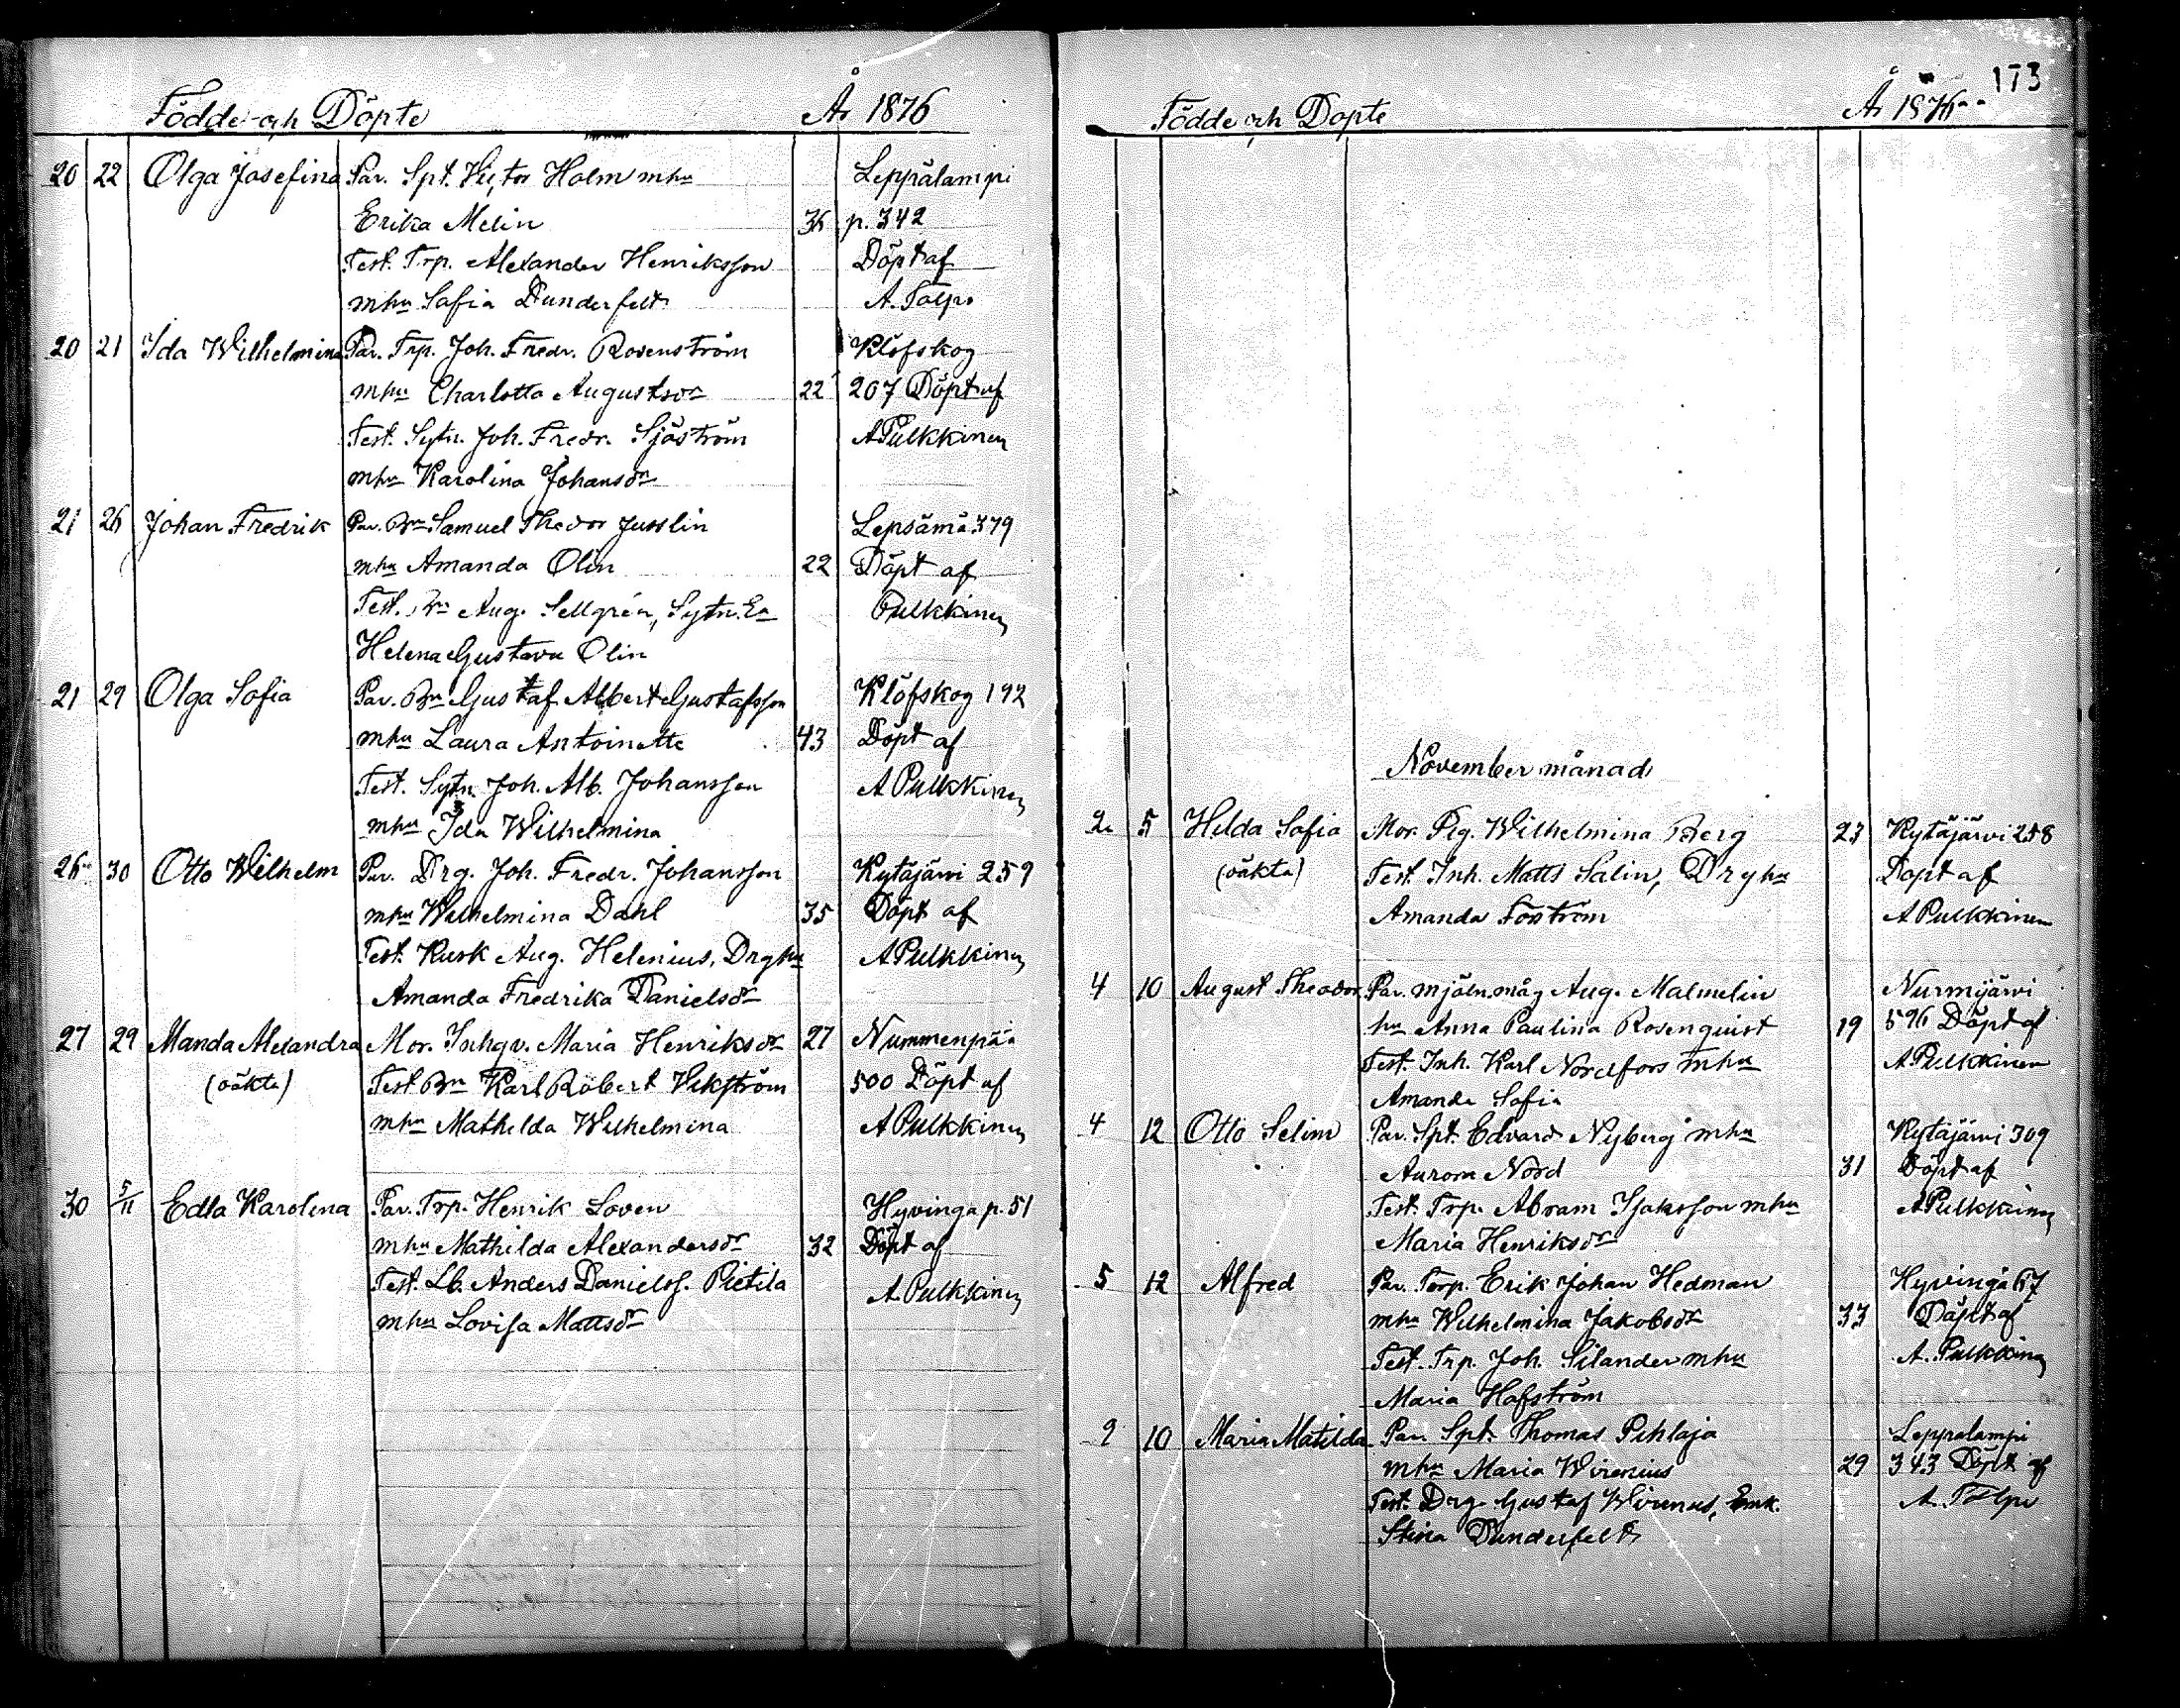 Födde och Döpte År 1876
20 22 Olga Josefina Par. Spt. Victor Holm mhu Leppälampi
Erika Melin 36 p. 342
Test. Trp. Alexander Henriksson Döpt af
mhu Sofia Dunderfelt A. Tolpo
20 21 Ida Wilhelmina Par. Trp. Joh. Fredr. Rosenström Klöfskog
mhu Charlotta Augustsdr 22 207 Döpt af
Test. Sytn. Joh. Fredr. Sjöström A Pulkkinen
mhu Karolina Johansdr
21 26 Johan Fredrik Par. Bn Samuel Theodor Jusslin Lepsämä 379
mhu Amanda Olin 22 Döpt af
Test. Bn Aug. Sellgrén, Sytn. En Pulkkinen
Helena Gustava Olin
21 29 Olga Sofia Par. Bn Gustaf Albert Gustafsson Klöfskog 192
mhu Laura Antoinette 43 Döpt af
Test. Sytn Joh. Alb. Johansson A Pulkkinen
mhu Ida Wilhelmina
26 30 Otto Wilhelm Par. Drg. Joh. Fredr. Johansson Kytäjärvi 259
mhu Wilhelmina Dahl 35 Döpt af
Test. Kusk Aug. Helenius, Drghu A Pulkkinen
Amanda Fredrika Danielsdr
27 29 Manda Alexandra Mor. Inhqv. Maria Henriksdr 27 Nummenpää
(oäkta) Test Bn Karl Robert Vikström 500 Döpt af
mhu Mathilda Wilhelmina A Pulkkinen
30 5/11 Edla Karolina Par. Trp. Henrik Loven Hyvinga p. 51
mhu Mathilda Alexandersdr 32 Döpt af
Test. Lb. Anders Danielss. Pietilä A. Pulkkinen
mhu Lovisa Mattsdr
173
Födde och Döpte År 1876
November månad
2 5 Hilda Sofia Mor. Pig. Wilhelmina Berg 23 Kytäjärvi 258
(oäkta) Test. Inh. Matts Salin, Drghu Döpt af
Amanda Forström A Pulkkinen
4 10 August Theodor Par. mjöln.måg Aug. Malmelin Nurmijärvi
hu Anna Paulina Rosenquist 19 596 Döpt af
Test. Inh. Karl Nordfors mhu A Pulkkinen
Amanda Sofia
4 12 Otto Selim Par. Spt. Edvard Nyberg mhu Kytäjärvi 309
Aurora Nord 31 Döpt af
Test. Trp. Abram Isaksson mhu A Pulkkinen
Maria Henriksdr
5 12 Alfred Par. Torp. Erik Johan Hedman Hyvinga 67
mhu Wilhelmina Jakobsdr 33 Döpt af
Test. Trp. Joh. Silander mhu A. Pulkkinen
Maria Hafström
9 10 Maria Matilda Par. Spt. Thomas Pihlaja Leppälampi
mhu Maria Wirenius 29 343 Döpt af
Test. Drg. Gustaf Wirenius, Enk. A. Tolpo
Stina Dunderfelt